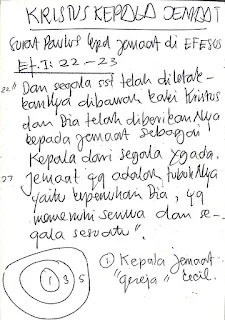 KRISTUS KEPALA JEMAAT
Surat Paulus kpd jemaat di EFESUS
Ef. I: 22-23
22 "Dan segala sst telah diletak-
kanNya dibawah kaki Kristus
dan Dia telah diberikanNya
kepada jemaat sebagai
Kepala dari segala yg ada.
Jemaat yg adalah tubuhNya
yaitu kepenuhan Dia, yg
memenuhi semua dan se-
gala sesuatu".
① Kepala jemaat
"gereja" kecil.
1 3 5